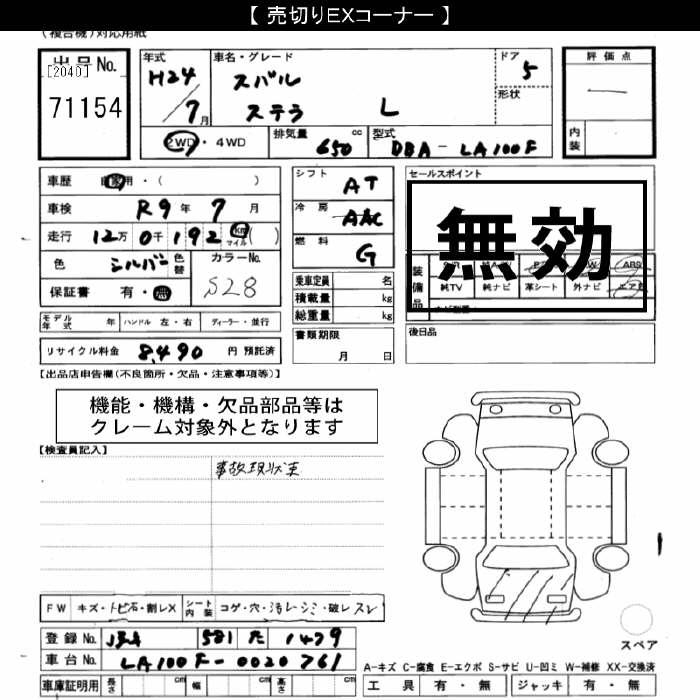 【 売切りEXコーナー 】
(複合機)対応用紙
出品 No.
[2040]
71154
年式
H24/7月
車名・グレード
スバル
ステラ L
ドア
5
形状
評価点
内装
2WD・4WD
排気量 650 cc
型式 DBA-LA100F
車歴 自家用・( )
車検 R9年 7月
走行 12万 0千 192 km マイル ( )
色 シルバー 色替
カラーNo.
S28
保証書 有・無
モデル年式 年 ハンドル 左・右 ディーラー・並行
リサイクル料金 8,490 円 預託済
シフト AT
冷房 AAC
燃料 G
乗車定員 名
積載量 kg
総重量 kg
書類期限
月 日
セールスポイント
無効
装備品
ABS
純TV 純ナビ 革シート 外ナビ エアB
後日品
【出品店申告欄(不良箇所・欠品・注意事項等)】
機能・機構・欠品部品等は
クレーム対象外となります
【検査員記入】
事故現状車
FW キズ・トビ石・割レX シート内装 コゲ・穴・汚レ・シミ・破レ スレ
登録 No. 581 た 1479
車台 No. LA100F-0020761
車庫証明用 長さ cm 幅 cm 高さ cm
スペア
A-キズ C-腐食 E-エクボ S-サビ U-凹ミ W-補修 XX-交換済
工具 有・無 ジャッキ 有・無